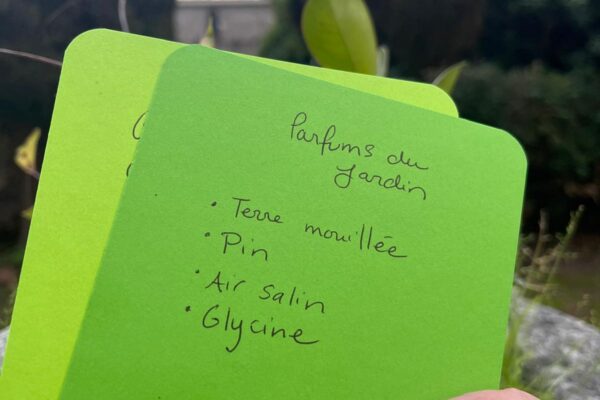 Parfums du
Jardin
• Terre mouillée
• Pin
• Air salin
• Glycine